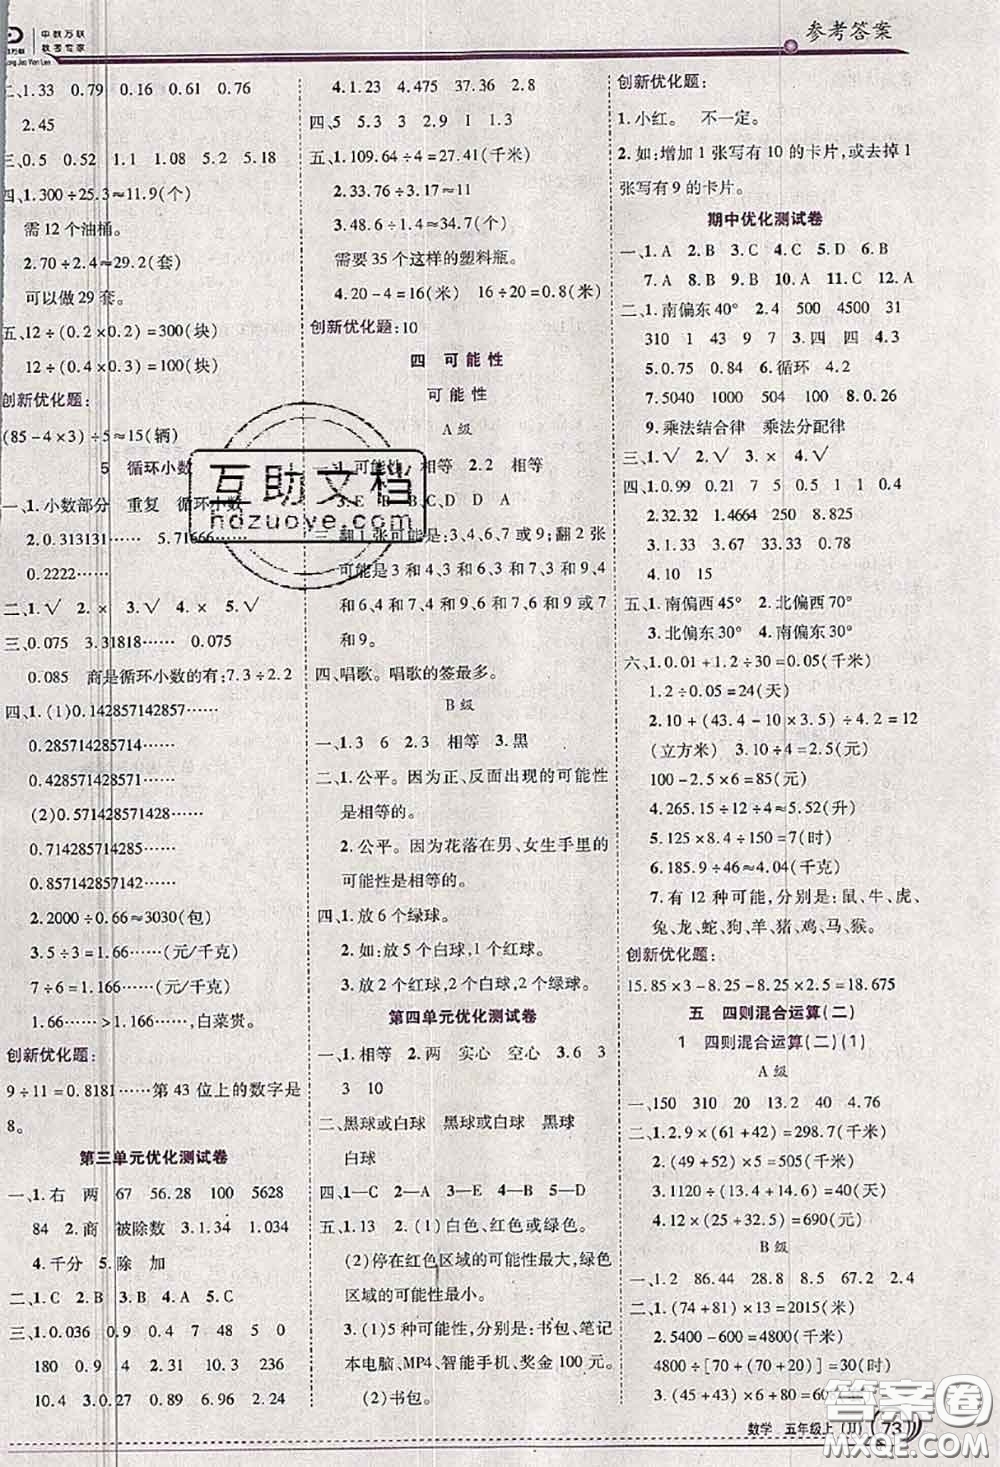 中教万联
教考专家
参考答案
二、1.33 0.79 0.16 0.61 0.76
2.45
三、0.5 0.52 1.1 1.08 5.2 5.18
四、1.300÷25.3≈11.9(个)
需 12 个油桶。
2.70÷2.4≈29.2(套)
可以做 29 套。
五、12÷(0.2×0.2)=300(块)
12÷(0.4×0.3)=100(块)
创新优化题:
(85-4×3)÷5≈15(辆)
5 循环小数
一、1.小数部分 重复 循环小数
2.0.313131…… 5.71666……
0.2222……
二、1.√ 2.× 3.√ 4.× 5.√
三、0.075 3.31818……
0.085 商是循环小数的有:7.3÷2.2
四、1.(1)0.142857142857……
0.285714285714……
0.428571428571……
(2)0.571428571428……
0.714285714285……
0.857142857142……
2.2000÷0.66≈3030(包)
3.5÷3=1.66……(元/千克)
7÷6=1.166……(元/千克)
1.66……>1.166……,白菜贵。
创新优化题:
9÷11=0.8181……第 43 位上的数字是
8。
第三单元优化测试卷
一、1.右 两 67 56.28 100 5628
84 2.商 被除数 3.1.34 1.034
4.千分 5.除 加
二、1.C 2.B 3.B 4.A 5.C
三、1.0.036 0.9 0.4 7 48 5 0
180 0.9 4 2.2 30 10.3 236
10.4 3.0.27 0.89 6.96 2.24
4.1.23 4.475 37.36 2.8
四、5 5.3 3 2.9 1 1.3
五、1.109.64÷4=27.41(千米)
2.33.76÷3.17≈11
3.48.6÷1.4≈34.7(个)
需要 35 个这样的塑料瓶。
4.20-4=16(米) 16÷20=0.8(米)
创新优化题:10
四 可能性
可能性
A 级
一、1.可能性 相等 2.2 相等
3.E B B、C、D A
二、翻 1 张可能是:3、4、6、7、9;翻 2 张
可能是 3 和 4、3 和 6、3 和 7、3 和 9、4
和 6、4 和 7、4 和 9、6 和 7、6 和 9 或 7
和 9。
四、唱歌。唱歌的签最多。
B 级
一、1.3 6 2.3 相等 3.黑
二、1.公平。因为正、反面出现的可能性
是相等的。
2.公平。因为花落在男、女生手里的
可能性是相等的。
四、1.放 6 个绿球。
2.如:放 5 个白球,1 个红球。
3.放 2 个红球,2 个白球,2 个绿球。
第四单元优化测试卷
一、1.相等 2.两 实心 空心 3.6 3
3 10
二、黑球或白球 黑球或白球 黑球
白球
四、1—C 2—A 3—B 4—E 5—D
五、1.13 2.(1)白色、红色或绿色。
(2)停在红色区域的可能性最大,绿色
区域的可能性最小。
3.(1)5 种可能性,分别是:书包、笔记
本电脑、MP4、智能手机、奖金 100 元。
(2)书包。
创新优化题:
1.小红。 不一定。
2.如:增加 1 张写有 10 的卡片,或去掉 1
张写有 9 的卡片。
期中优化测试卷
一、1.A 2.B 3.C 4.C 5.D 6.B
7.A 8.C 9.C 10.A 11.C 12.A
二、1.南偏东 40° 2.4 500 4500 31
310 1 43 9 7 3.四 四 4.3
5.0.75 0.84 6.循环 4.2
7.5040 1000 504 100 8.0.26
9.乘法结合律 乘法分配律
三、1.√ 2.√ 3.× 4.× 5.√
四、1.0.99 0.21 7 5 0.5 1
2.32.32 1.4664 250 8.825
3.12.2 7.2 33 57.2 24 3.7
4.10 15
五、1.南偏西 45° 2.北偏西 70°
3.北偏东 30° 4.南偏东 20°
六、1.0.01+1.2÷30=0.05(千米)
1.2÷0.05=24(天)
2.10+(43.4-10×3)÷4.2=12
(立方米) 3.10÷4=2.5(元)
100-2.5×6=85(元)
4.265.15÷12÷4≈5.52(升)
5.125×8.4÷150=7(时)
6.185.9÷46≈4.04(千克)
7.有 12 种可能,分别是:鼠、牛、虎、
兔、龙、蛇、狗、羊、猪、鸡、马、猴。
创新优化题:
15.85×3-8.25-8.25×2=18.675
五 四则混合运算(二)
1 四则混合运算(二)(1)
A 级
一、150 310 20 13.2 40 4.76
二、1.2.9×(61+42)=298.7(千米)
2.(49+52)×5=505(千米)
3.1120÷(4.8+5.2)=112(时)
4.12×(25+32.5)=690(元)
B 级
一、2 86.44 28.8 8.5 67.2 2.4
二、1.(74+81)×13=2015(米)
2.5400-600=4800(千米)
4800÷[70+(70+20)]=30(时)
3.(45+43)×60-
数学 五年级上(JJ) 73
互助文档
hdzuoye.com
答案圈
MXQE.COM